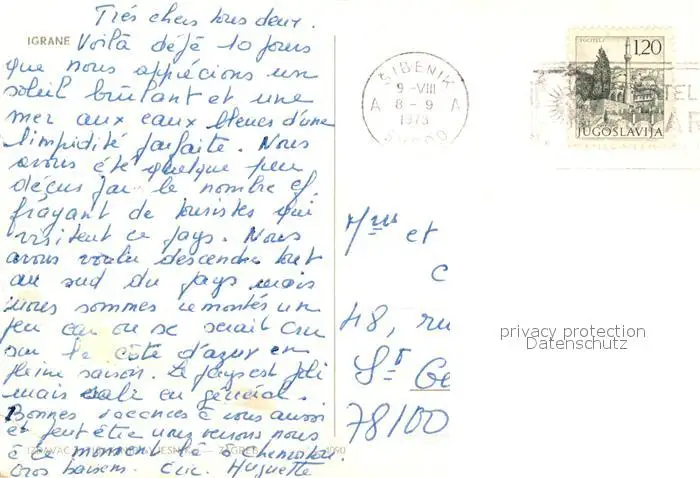 Très chers tous deux.
IGRANE Voilà déjà 10 jours
que nous apprécions un
soleil brûlant et une
mer aux eaux bleues d'une
limpidité parfaite. Nous
avons été quelque peu
déçus par le nombre ef-
frayant de touristes qui
visitent ce pays. Nous
avons voulu descendre tout
au sud du pays mais
nous sommes remontés un
peu car on se serait cru
sur la côte d'azur en
pleine saison. Le pays est joli
mais sale en général.
Bonnes vacances à vous aussi
et peut être nous verrons nous
à ce moment là à
Gros baisers. Huguette
IZDAVAČ ZAGREB 1090
ŠIBENIK
9-VIII
A 8-9 A
1973
POČITELJ
1,20
JUGOSLAVIJA
HOTEL
et
48, ru
St Ge
78100
privacy protection
Datenschutz